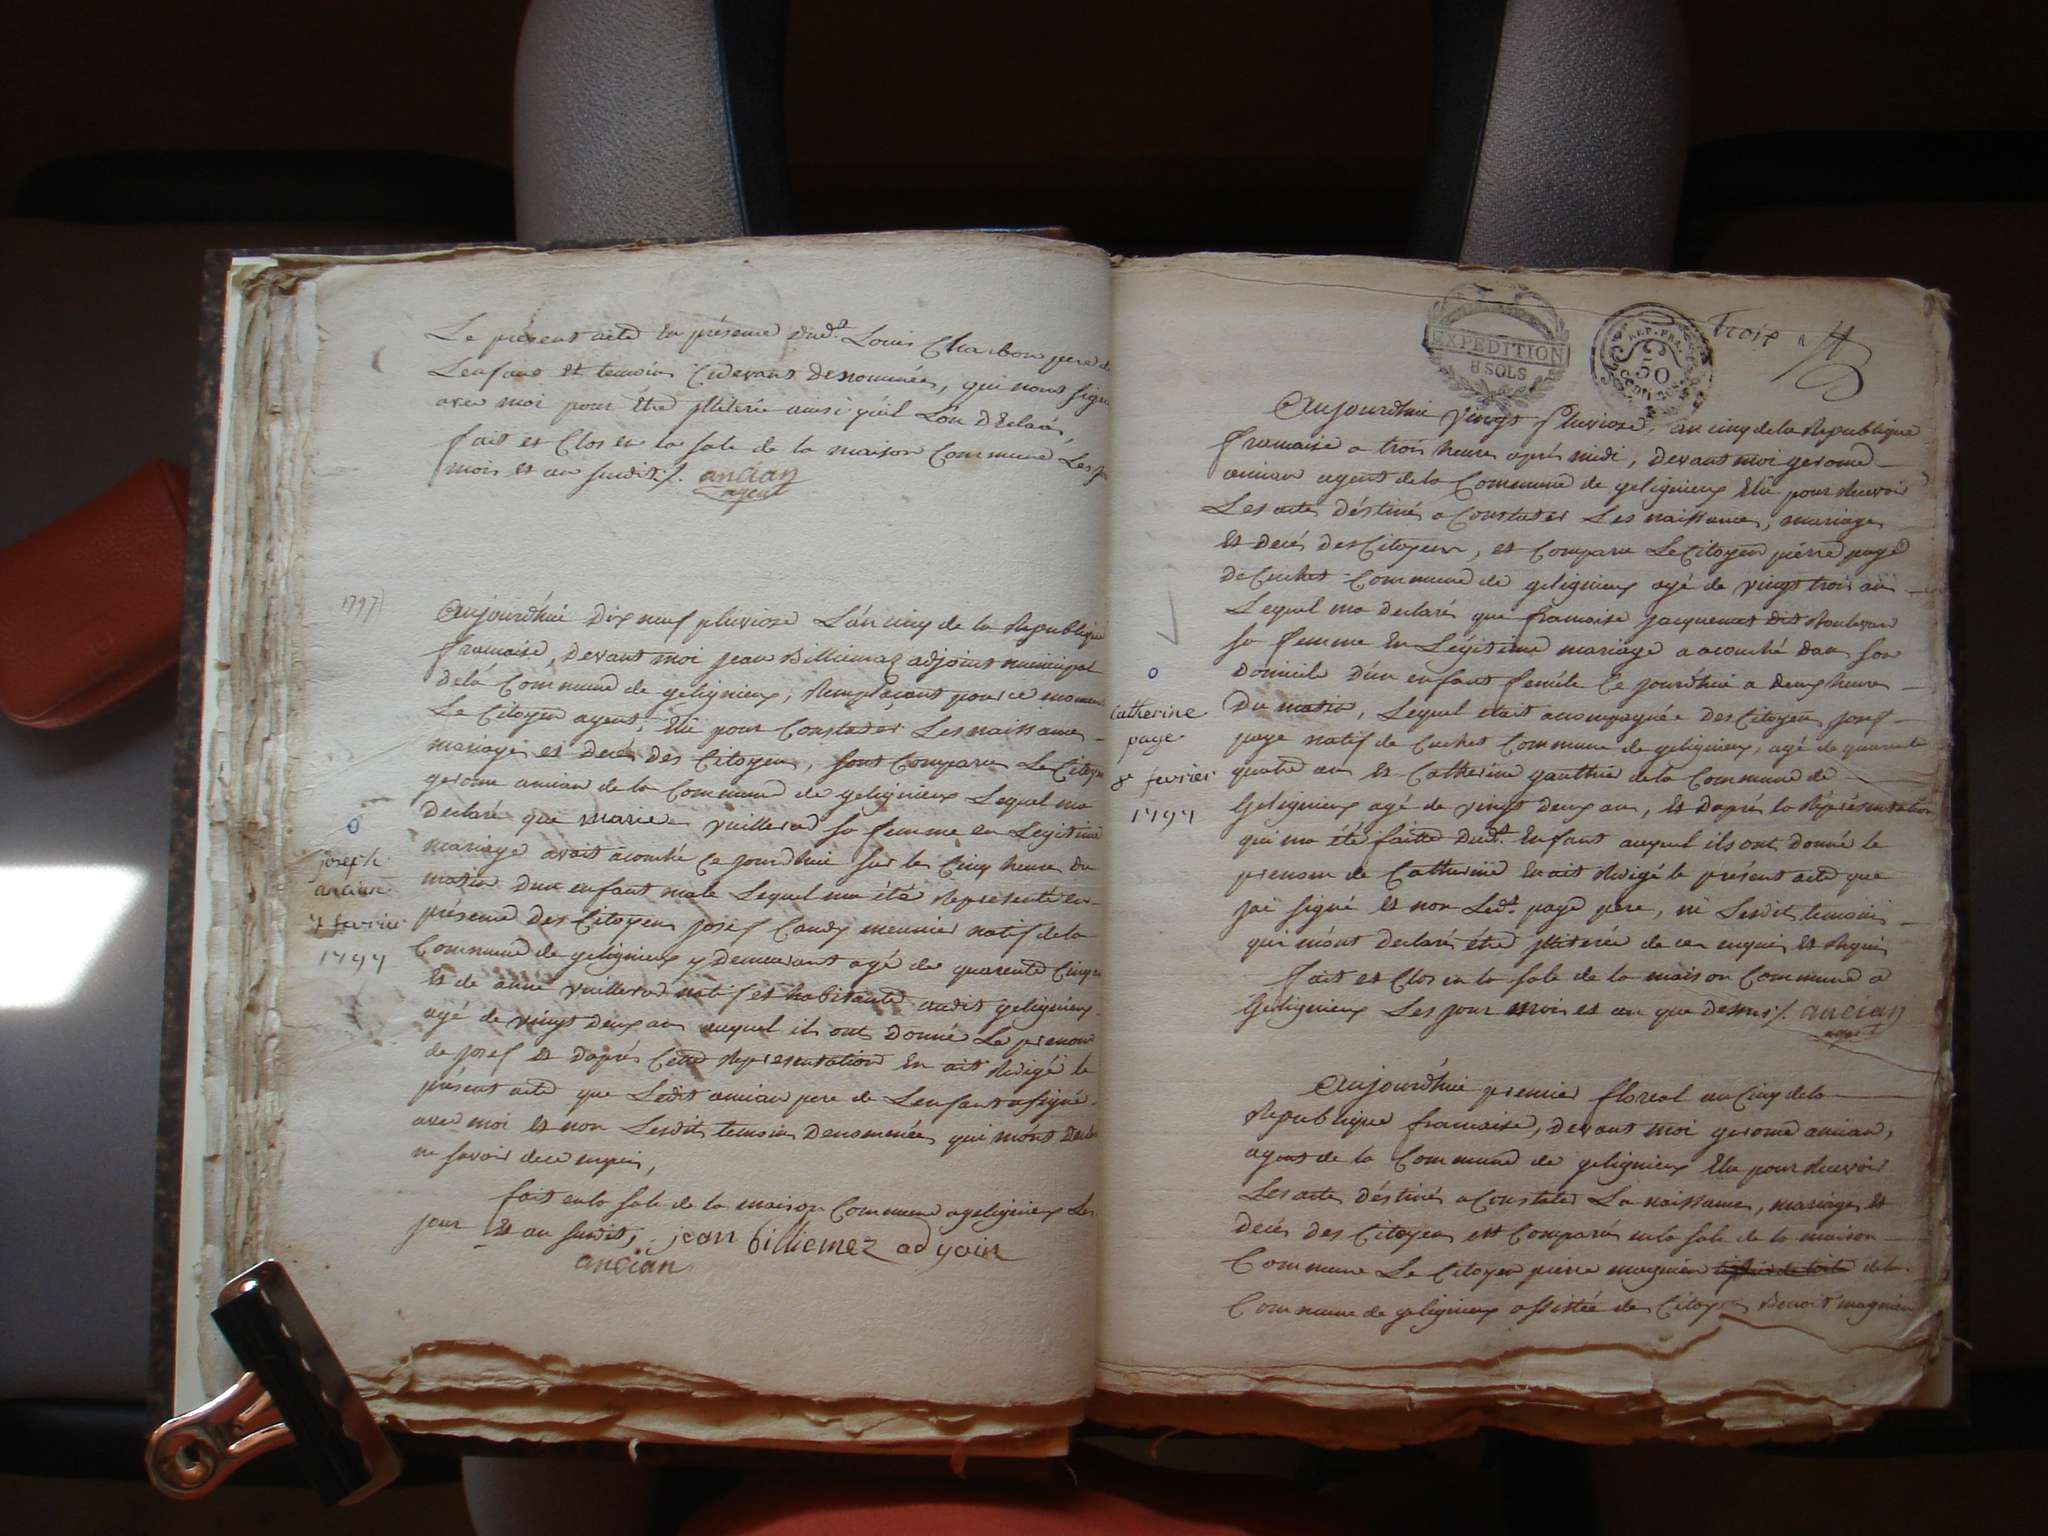 Le présent acte en présence dudt. Louis Charbon pere de
L'enfant et temoin Cydevant denommées, qui n'ont signé
avec moi pour être illiterée ainsi qu'il L'on Déclaré,
fait et Clos en la sale de la maison Commune Les jour
mois et an susdit ./. ancian
agent
1797
Aujourdhuÿ Dix neuf pluviose L'an cinq de la Republique
francaise, Devant moi Jean Billiemaz adjoint municipal
de la Commune de geligneux, Remplacant pour ce moment
Le Citoyen agent, Elû pour Constater Les naissances
mariages et Decés Des Citoyens, sont Comparu Le Citoyen
gerome ancian de la Commune de geligneux Lequel ma
Declaré que marie vuillerod sa femme en Legitime
mariage avait acouché ce jourdhui sur les Cinq heure du
matin d'un enfant male Lequel ma été Representé en
présence des Citoyens josef Candy meunier natif de la
Commune de geligneux y Demeurant agé de quarente Cinq
Et de anne vuillerod natif et habitante audit geligneux
agé de vingt deux ans auquel ils ont Donné Le prenom
de josef et daprés Cette Representation En ait Redigé le
présent acte que Ledit ancian pere de L'enfant a signé
avec moi et non Lesdits temoins Denommées qui m'ont Declaré
ne savoir de ce enquis,
fait en la sale de la maison Commune a geligneux Les
jour Et an susdits, jean billiemez adyoin
ancian
o
joseph
ancian
7 fevrier
1797
Troix
EXPEDITION
8 SOLS
REP. FRA.
50
CENTIMES
Aujourdhui vingt Pluviose, an cinq de la Republique
francaise a trois heures aprés midi, Devant moi gerome
ancian agent de la Commune de geligneux Elû pour Recevoir
Les actes déstinés a Constater Les naissances, mariages
Et Decés Des Citoyens, et Comparu Le Citoyen piérre page
De Cuchet Commune de geligneux agé de vingt trois ans
Lequel ma Declaré que francoise jacquemet dit Roulevan
sa femme En Légitime mariage a acouché dan son
Domicile d'un enfant femêle Ce jourdhui a deux heures
Du matin, Lequel etait acompagnée Des Citoyens josef
page natif de Cuchet Commune de geligneux, agé de quarante
quatre ans Et Catherine gauthier de la Commune de
Geligneux agé de vingt deux ans, Et daprés la Réprésentation
qui ma été faitte Dudt. Enfant auquel ils ont donné le
prenom de Catherine En ait Redigé le présent acte que
jai signé Et non Ledt. page pere, ni Lesdit temoins
qui m'ont Declaré étre illiterée de ce enquis et Requis
fait et Clos en la sale de la maison Commune a
Geligneux Les jour mois et an que Dessus ./. ancian
agent
o
Catherine
page
8e fevrier
1797
Aujourdhui premier floreal an Cinq de la
Republique francaise, devant moi gerome ancian,
agent de la Commune de geligneux Elu pour Recevoir
Les actes déstinés a Constater La naissances, mariages Et
decés des Citoyens est Comparu en la sale de la maison
Commune Le Citoyen pierre magnien de la
Commune de geligneux assistée des Citoyens Benoit magnien